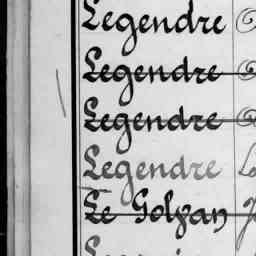 Legendre
Legendre
Legendre
Legendre
Le Golvan